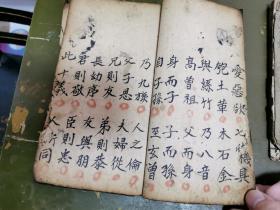 愛惡欲 七情具
匏土革 木石金
與絲竹 乃八音
高曾祖 父而身
身而子 子而孫
自子孫 至玄曾
乃九族 人之倫
父子恩 夫婦從
兄則友 弟則恭
長幼序 友與朋
君則敬 臣則忠
此十義 人所同